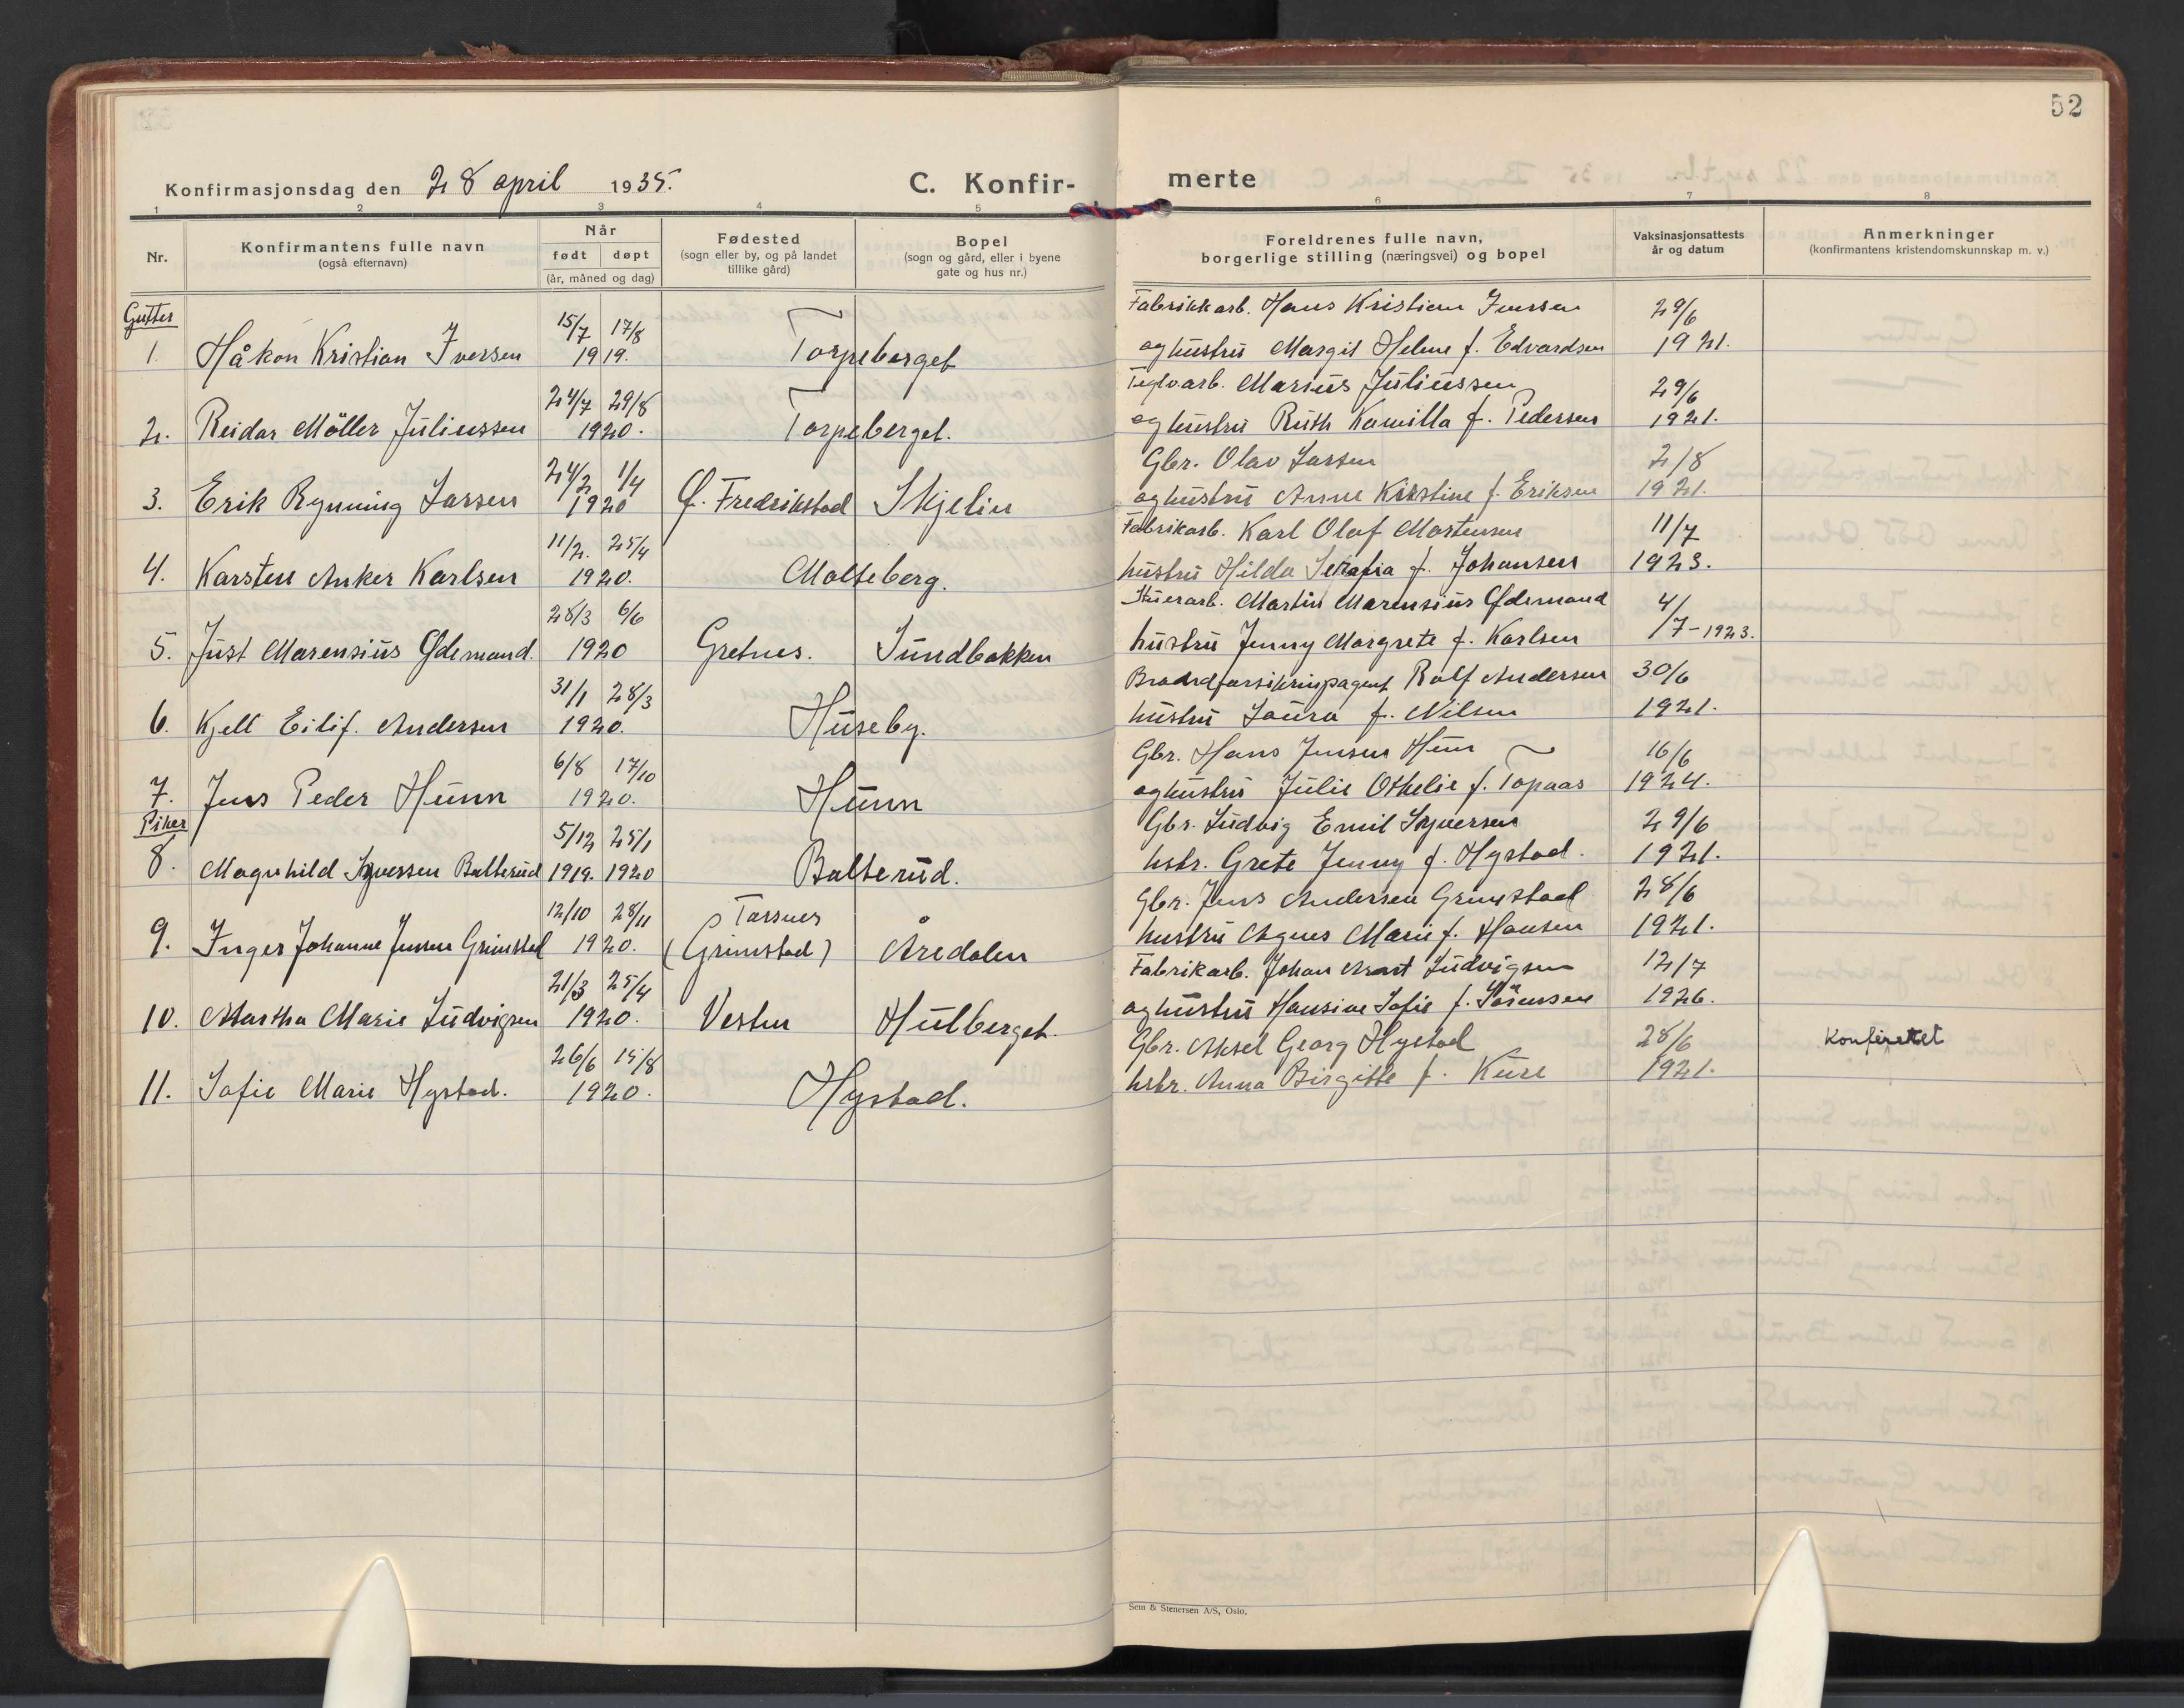 52
Konfirmasjonsdag den 28 april 1935.
C. Konfir- merte
1 2 3 4 5 6 7 8
Nr.
Konfirmantens fulle navn
(også efternavn)
Når
født døpt
(år, måned og dag)
Fødested
(sogn eller by, og på landet
tillike gård)
Bopel
(sogn og gård, eller i byene
gate og hus nr.)
Foreldrenes fulle navn,
borgerlige stilling (næringsvei) og bopel
Vaksinasjonsattests
år og datum
Anmerkninger
(konfirmantens kristendomskunnskap m. v.)
Gutter
15/7 17/8 Fabrikkarb. Hans Kristian Iversen 29/6
1. Håkon Kristian Iversen 1919. Torpeberget og hustru Margit Helene f. Edvardsen 1921.
24/7 29/8 Teglv.arb. Marius Juliussen 29/6
2. Reidar Möller Juliussen 1920. Torpeberget. og hustru Ruth Kamilla f. Pedersen 1921.
24/2 1/4 Gbr. Olav Larsen 2/8
3. Erik Rynning Larsen 1920 Ø. Fredrikstad Skjelin og hustru Anne Kirstine f. Eriksen 1921.
11/2. 25/4 Fabrikarb. Karl Olaf Martensen 11/7
4. Karsten Anker Karlsen 1920. Molteberg. hustru Hilda Serafia f. Johansen 1923.
28/3 6/6 Stuerarb. Martin Marensius Ødemand 4/7-1923.
5. Just Marensius Ødemand. 1920 Gretnes. Sundbakken hustru Jenny Margrete f. Karlsen
31/1 28/3 Brandforsikringsagent Rolf Andersen 30/6
6. Kjell Eilif. Andersen 1920. Huseby. hustru Laura f. Nilsen 1921.
6/8 17/10 Gbr. Hans Jensen Hun 16/6
7. Jens Peder Hunn 1920. Hunn og hustru Julie Othelie f. Topaas 1924.
Piker
5/12 25/1 Gbr. Ludvig Emil Syversen 29/6
8. Magnhild Syversen Balterud 1919. 1920 Balterud. hstr. Grete Jenny f. Hystad. 1921.
12/10 28/11 Torsnes Gbr. Jens Andersen Grimstad 28/6
9. Inger Johanne Jensen Grimstad 1920. (Grimstad) Åredalen hustru Agnes Marie f. Hansen 1921.
21/3 25/4 Fabrikarb. Johan Arnt Ludvigsen 12/7
10. Martha Marie Ludvigsen 1920. Vesten Hulberget. og hustru Hansine Sofie f. Sörensen 1926.
26/6 15/8 Gbr. Aksel Georg Hystad 28/6 Konferert
11. Sofie Marie Hystad. 1920. Hystad. hstr. Anna Birgitte f. Kure 1921.
Sem & Stenersen A/S, Oslo.